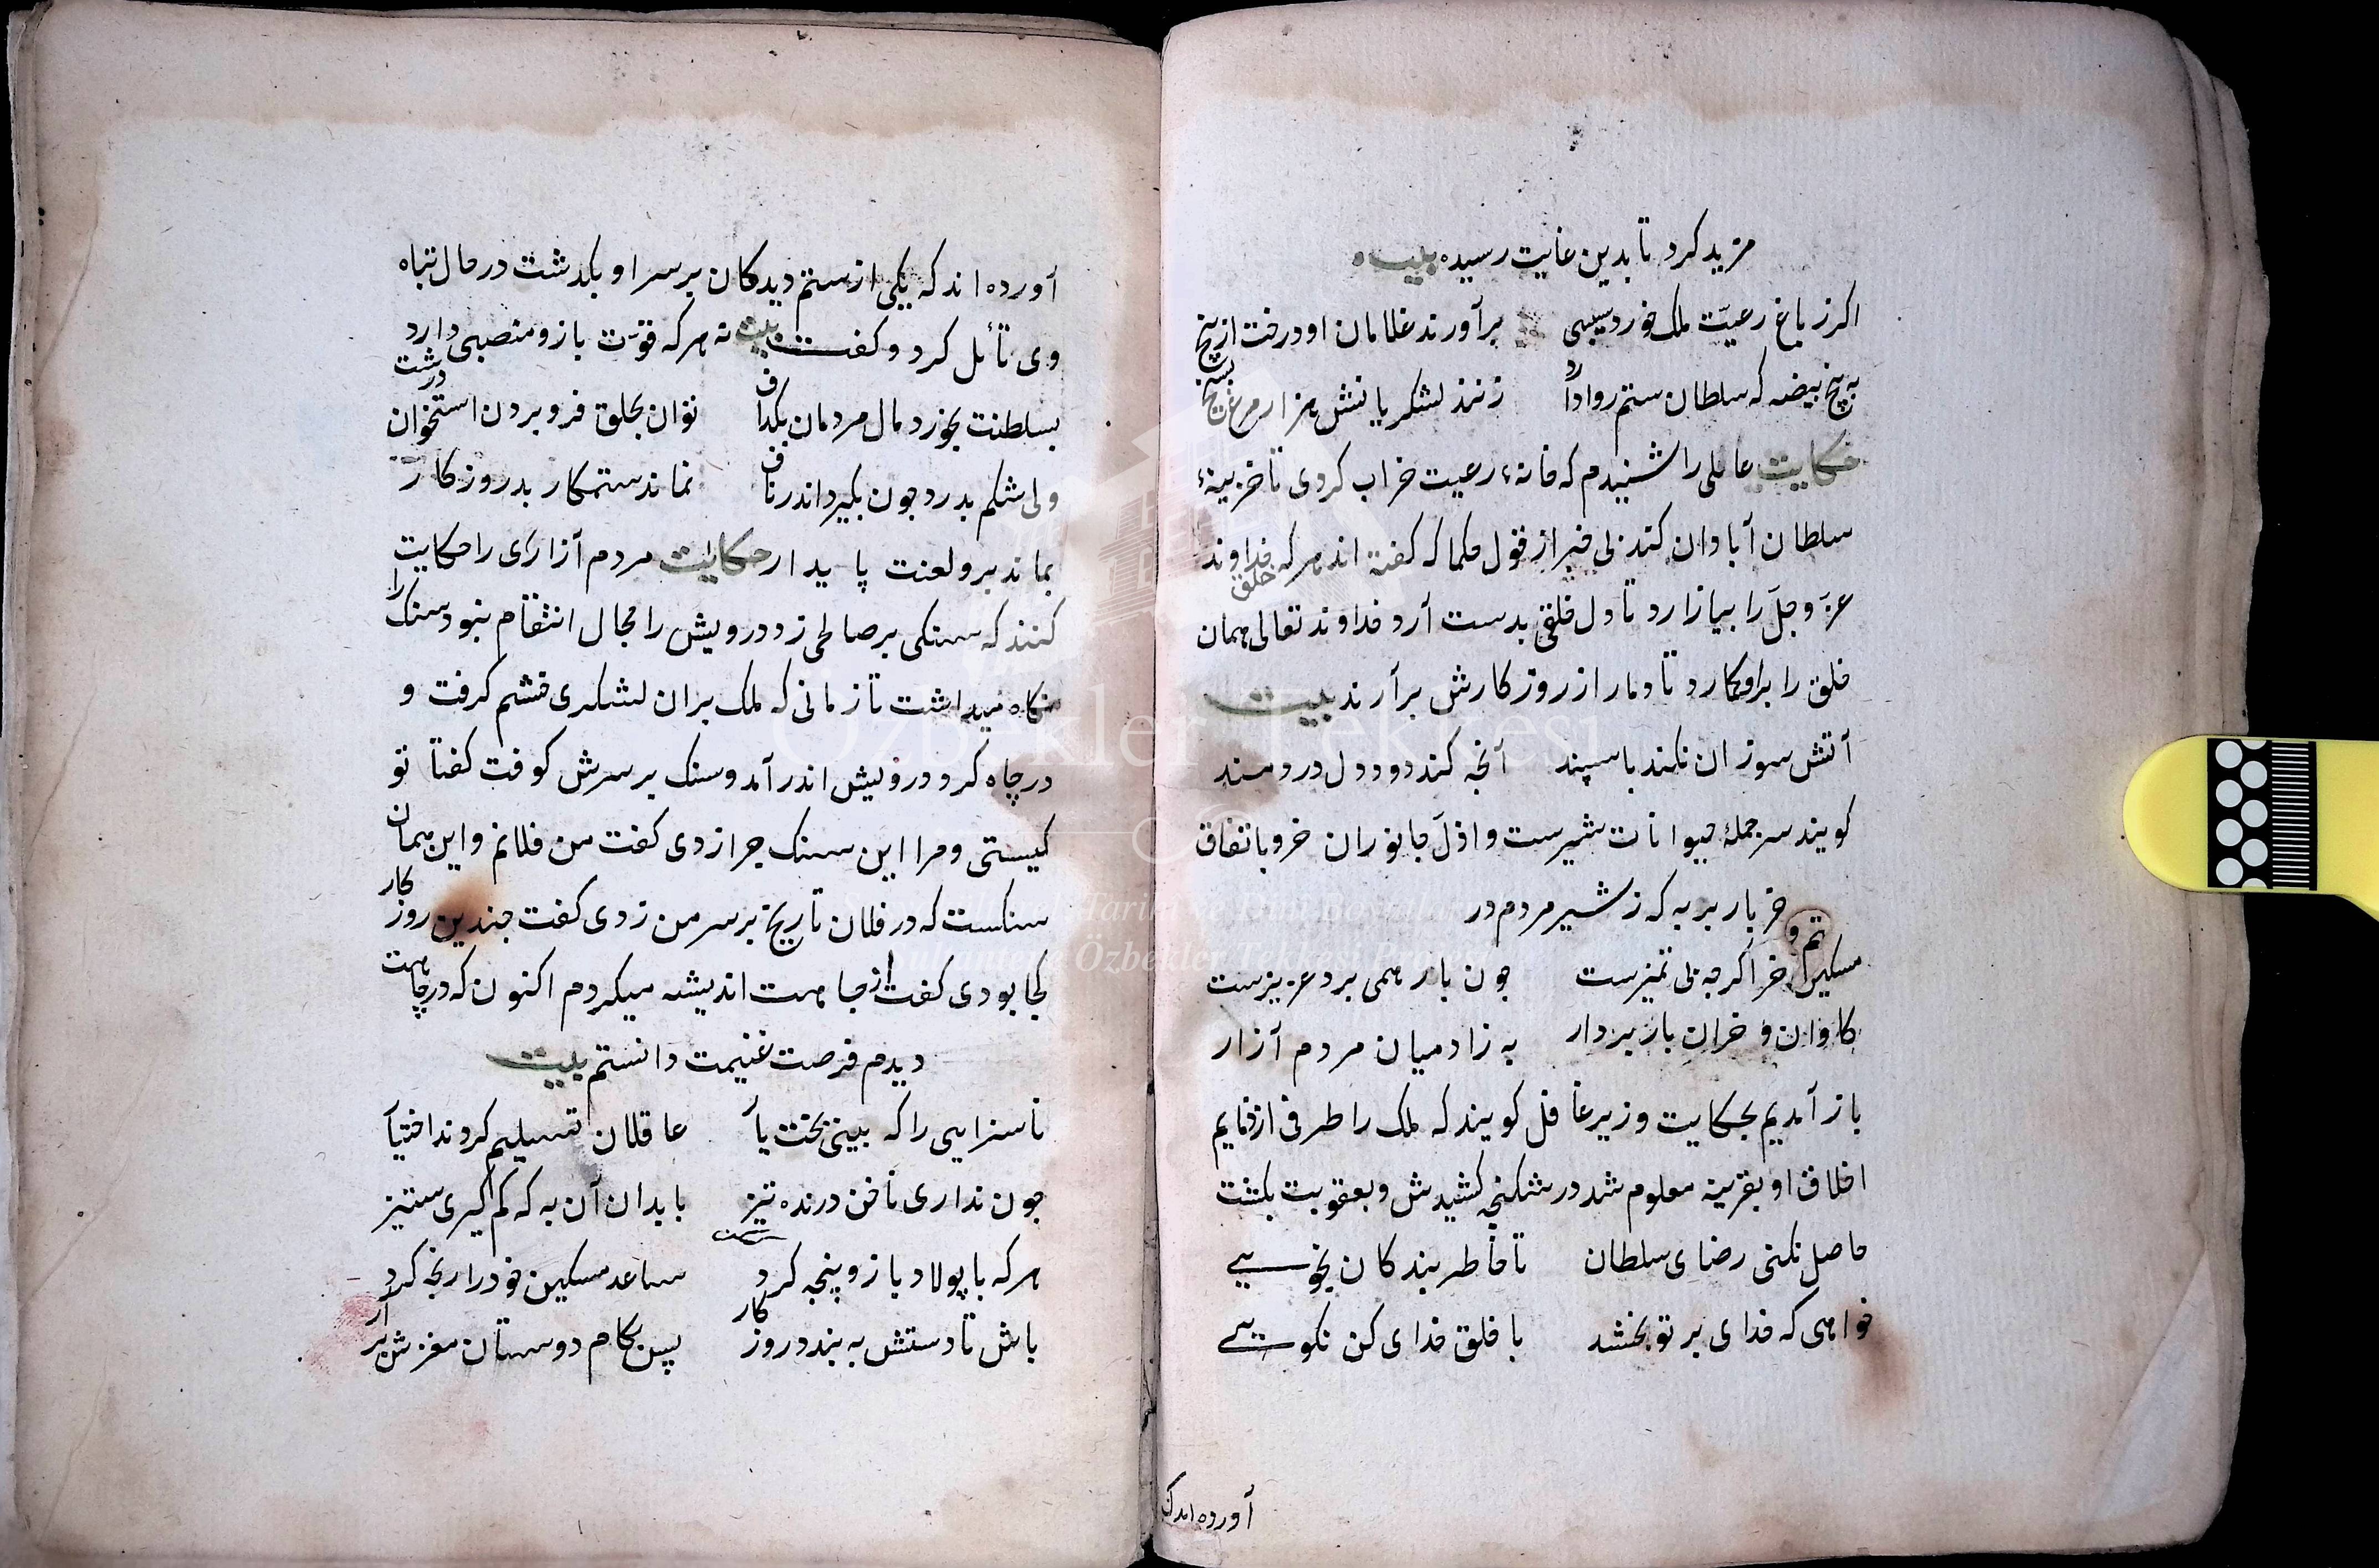 مزید کرد تا بدین غایت رسیده بیت
اکر ز باغ رعیّت ملک خورد سیبی برآورند غلامان او درخت از بیخ
به پنج بیضه که سلطان ستم روا دارد زنند لشکریانش هزار مرغ بسیخ
حکایت عاملی را شنیدم که خانهٔ رعیت خراب کردی تا خزینهٔ
سلطان آبادان کند بی خبر از قول حکما که کفته اند هر که خداوند
عزّ و جلّ را بیازارد تا دل خلقی بدست آرد خداوند تعالی همان خلق
خلق را برو کمارد تا دمار از روزکارش برآرند بیت
آتش سوزان نکند با سپند آنچه کند دود دل دردمند
کویند سر جملهٔ حیوانات شیرست و اذلّ جانوران خر و باتفاق
خر باربر به که ز شیر مردم در
مسکین خر اکرچه بی تمیزست جون بار همی برد عزیزست
کاوان و خران بار بردار به ز آدمیان مردم آزار
باز آمدیم بحکایت وزیر غافل کویند که ملک را طرفی از ذمایم
اخلاق او بقرینه معلوم شد در شکنجه کشیدش و بعقوبت بکشت
حاصل نکنی رضای سلطان تا خاطر بندکان نجویی
خواهی که خدای بر تو بخشد با خلق خدای کن نکویی
آورده اند که
آورده اند که یکی از ستم دیدکان بر سر او بکذشت در حال تباه
وی تأمل کرد و کفت بیت نه هر که قوّت بازو و منصبی دارد
بسلطنت بخورد مال مردمان بکذاف توان بحلق فرو بردن استخوان درشت
ولی شکم بدرد جون بکیرد اندر ناف نماند ستمکار بد روزکار
بماند برو لعنت پایدار حکایت مردم آزاری را حکایت
کنند که سنکی بر صالحی زد درویش را مجال انتقام نبود سنک را
نکاه میداشت تا زمانی که ملک بران لشکری خشم کرفت و
در چاه کرد درویش اندر آمد و سنک بر سرش کوفت کفتا تو
کیستی و مرا این سنک جرا زدی کفت من فلانم و این همان
سنکست که در فلان تاریخ بر سر من زدی کفت جندین روزکار
کجا بودی کفت از جاهت اندیشه میکردم اکنون که در چاهت
دیدم فرصت غنیمت دانستم بیت
ناسزایی را که بینی بخت یار عاقلان تسلیم کردند اختیار
جون نداری ناخن درنده تیز با بدان آن به که کم کیری ستیز
هر که با پولاد بازو پنجه کرد ساعد مسکین خود را رنجه کرد
باش تا دستش به بندد روزکار پس بکام دوستان مغزش برآر
Özbekler Tekkesi